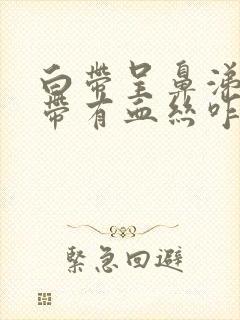 白帶呈鼻涕
帶有血絲咋
緊急回避